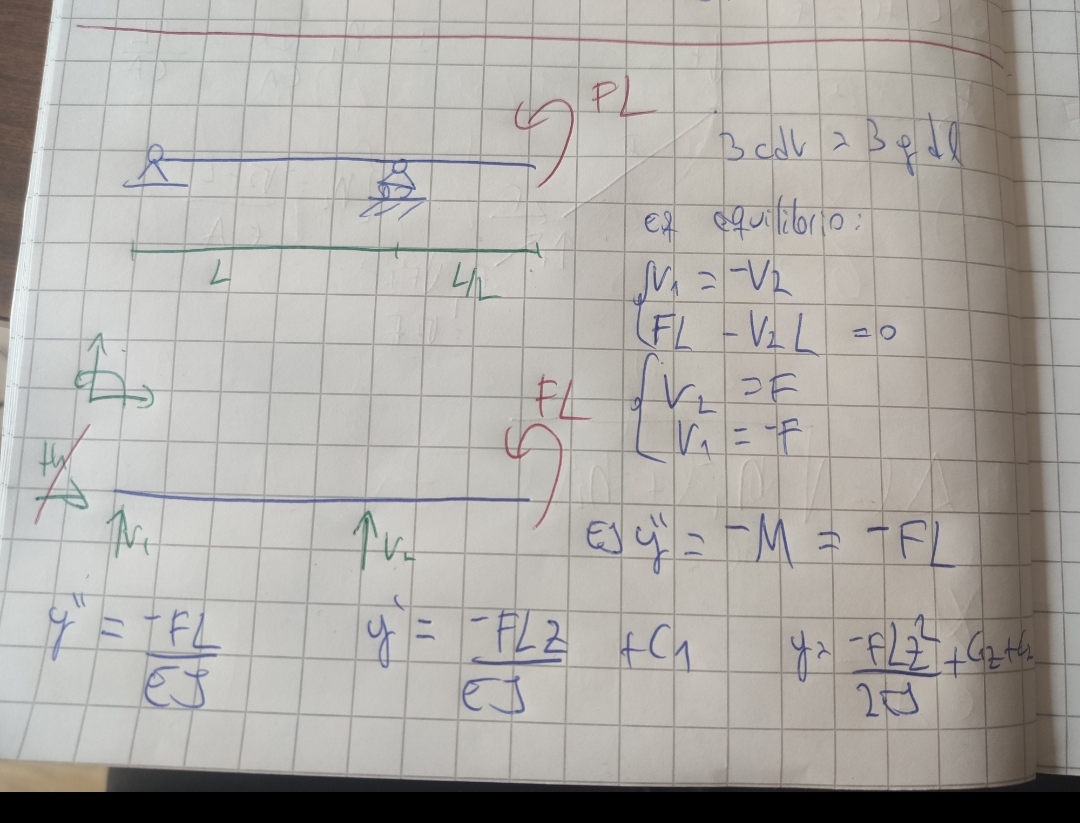 FL
3 cdv = 3 gdl
L L/2
eq equilibrio:
V₁ = -V₂
FL - V₂ L = 0
V₂ = F
V₁ = -F
FL
H₁
V₁ V₂
EJ y'' = -M = -FL
y'' = -FL/EJ y' = -FLz/EJ + C₁ y = -FLz²/2EJ + C₁z + C₂